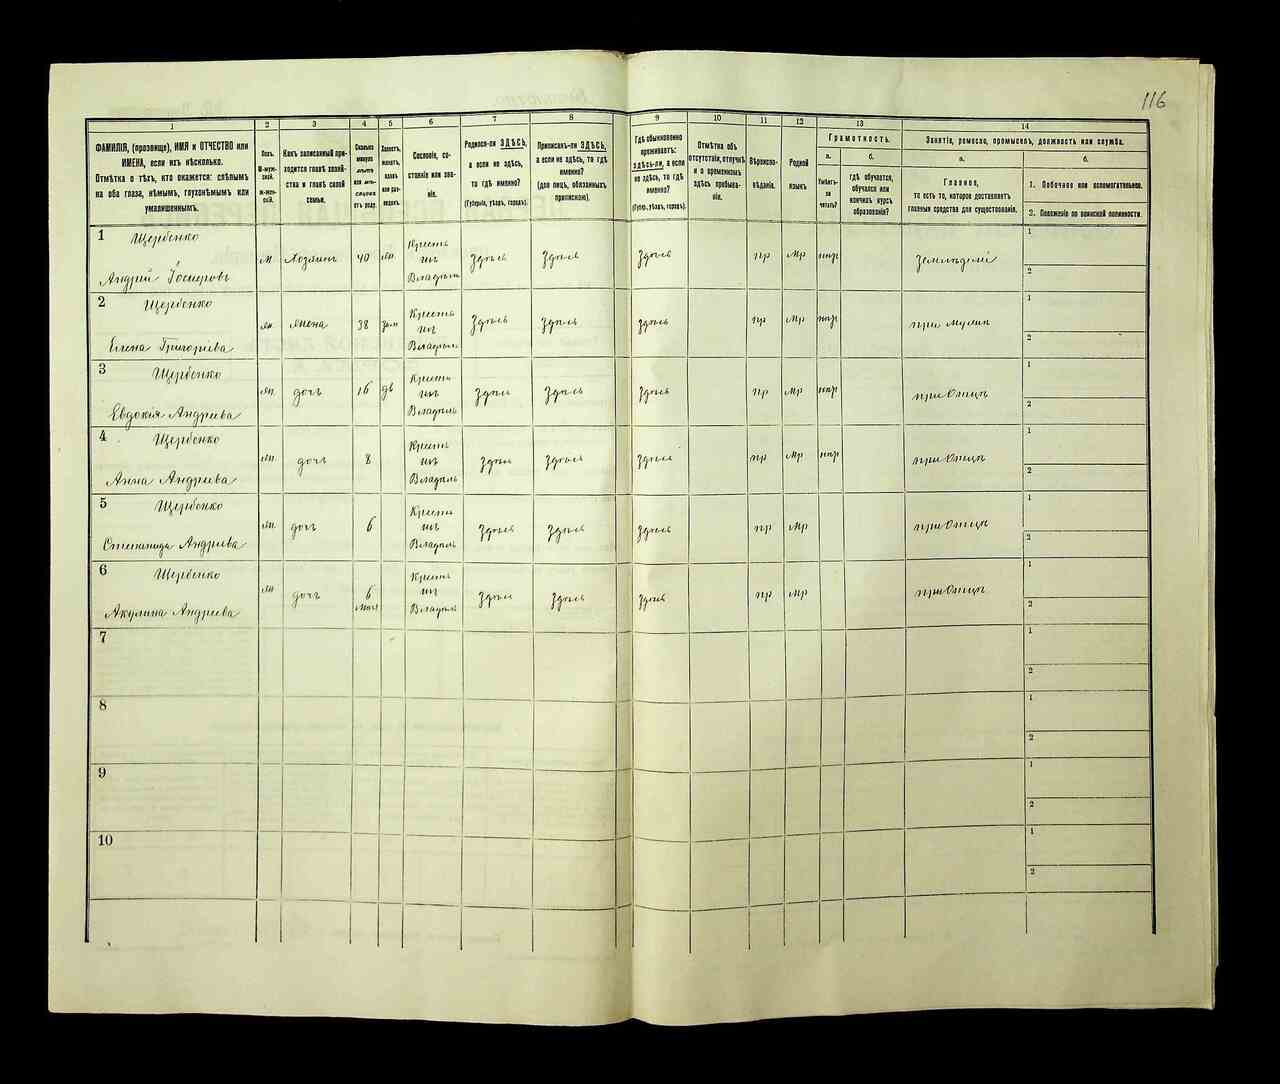 116
1
2
3
4
5
6
7
8
9
10
11
12
13
14
ФАМИЛІЯ, (прозвище), ИМЯ и ОТЧЕСТВО или
ИМЕНА, если ихъ нѣсколько.
Отмѣтка о тѣхъ, кто окажется: слѣпымъ
на оба глаза, нѣмымъ, глухонѣмымъ или
умалишеннымъ.
Полъ.
М-муж-
ской.
Ж-жен-
скій.
Какъ записанный при-
ходится главѣ хозяй-
ства и главѣ своей
семьи.
Сколько
минуло
лѣтъ
или мѣ-
сяцевъ
отъ роду.
Холостъ,
женатъ,
вдовъ
или раз-
веденъ.
Сословіе, со-
стояніе или зва-
ніе.
Родился-ли ЗДѢСЬ,
а если не здѣсь,
то гдѣ именно?
(Губернія, уѣздъ, городъ).
Приписанъ-ли ЗДѢСЬ,
а если не здѣсь, то гдѣ
именно?
(для лицъ, обязанныхъ
припискою).
Гдѣ обыкновенно
проживаетъ:
здѣсь-ли, а если
не здѣсь, то гдѣ
именно?
(Губер., уѣздъ, городъ).
Отмѣтка объ
отсутствіи, отлучкѣ
и о временномъ
здѣсь пребыва-
ніи.
Вѣроиспо-
вѣданіе.
Родной
языкъ
Грамотность.
а.
Умѣетъ-
ли
читать?
б.
гдѣ обучается,
обучался или
кончилъ курсъ
образованія?
Занятіе, ремесло, промыселъ, должность или служба.
а.
Главное,
то есть то, которое доставляетъ
главныя средства для существованія.
б.
1. Побочное или вспомогательное.
2. Положеніе по воинской повинности.
1 Щербенко
Андрій м Хозяинъ 40 Крестьян из Владѣль Здѣсь Здѣсь Здѣсь пр мр нѣр Земледѣліе 1
2
2 Щербенко
Елена Григоріева жн жена 38 зам Крестьян из Владѣль Здѣсь Здѣсь здѣсь пр мр нѣр при мужѣ 1
2
3 Щербенко
Евдокія Андріева жн дочь 16 дв Крестьян из Владѣль Здѣсь Здѣсь Здѣсь пр мр нѣр при Отцѣ 1
2
4 Щербенко
Анна Андріева жн дочь 8 Крестьян из Владѣль Здѣсь Здѣсь Здѣсь пр мр нѣр при Отцѣ 1
2
5 Щербенко
Степанида Андріева жн дочь 6 Крестьян из Владѣль Здѣсь Здѣсь Здѣсь пр мр при Отцѣ 1
2
6 Щербенко
Акулина Андріева жн дочь 6 Крестьян из Владѣль Здѣсь Здѣсь Здѣсь пр мр при Отцѣ 1
2
7 1
2
8 1
2
9 1
2
10 1
2